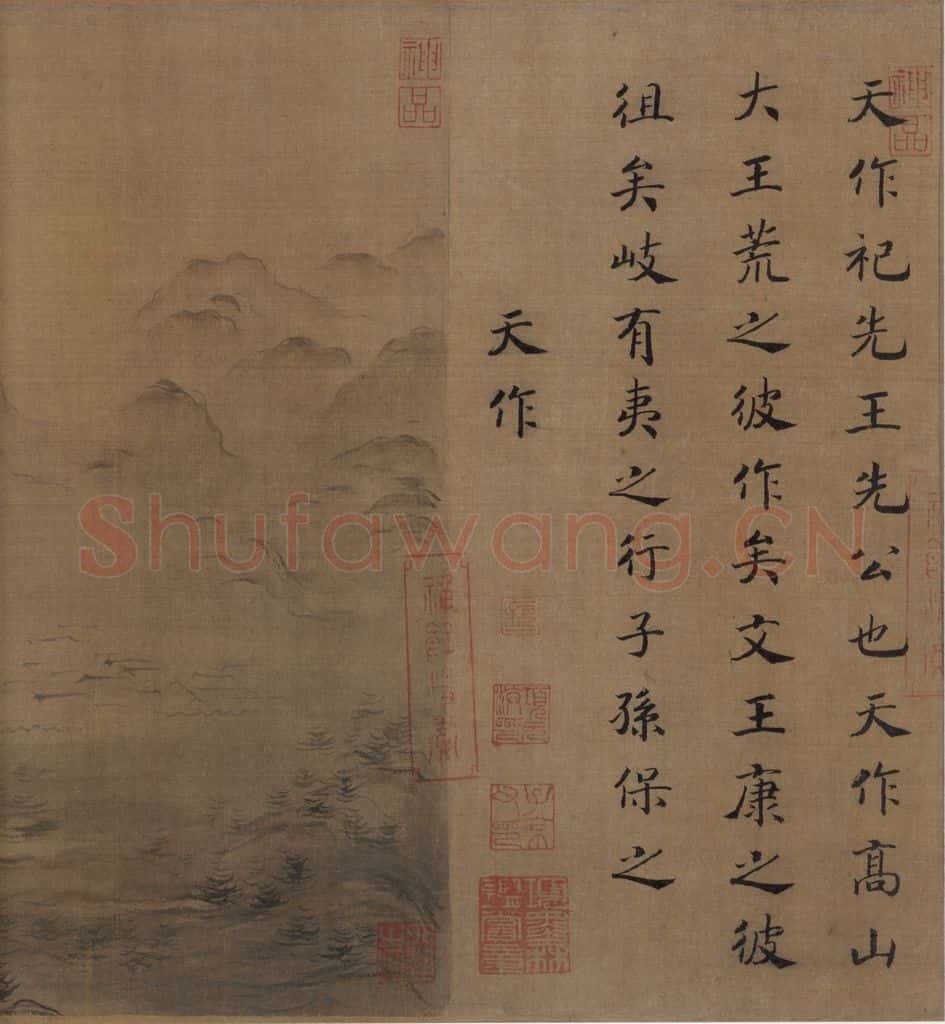 天作祀先王先公也天作高山
大王荒之彼作矣文王康之彼
徂矣岐有夷之行子孫保之
天作
神品
神品
Shufawang.CN